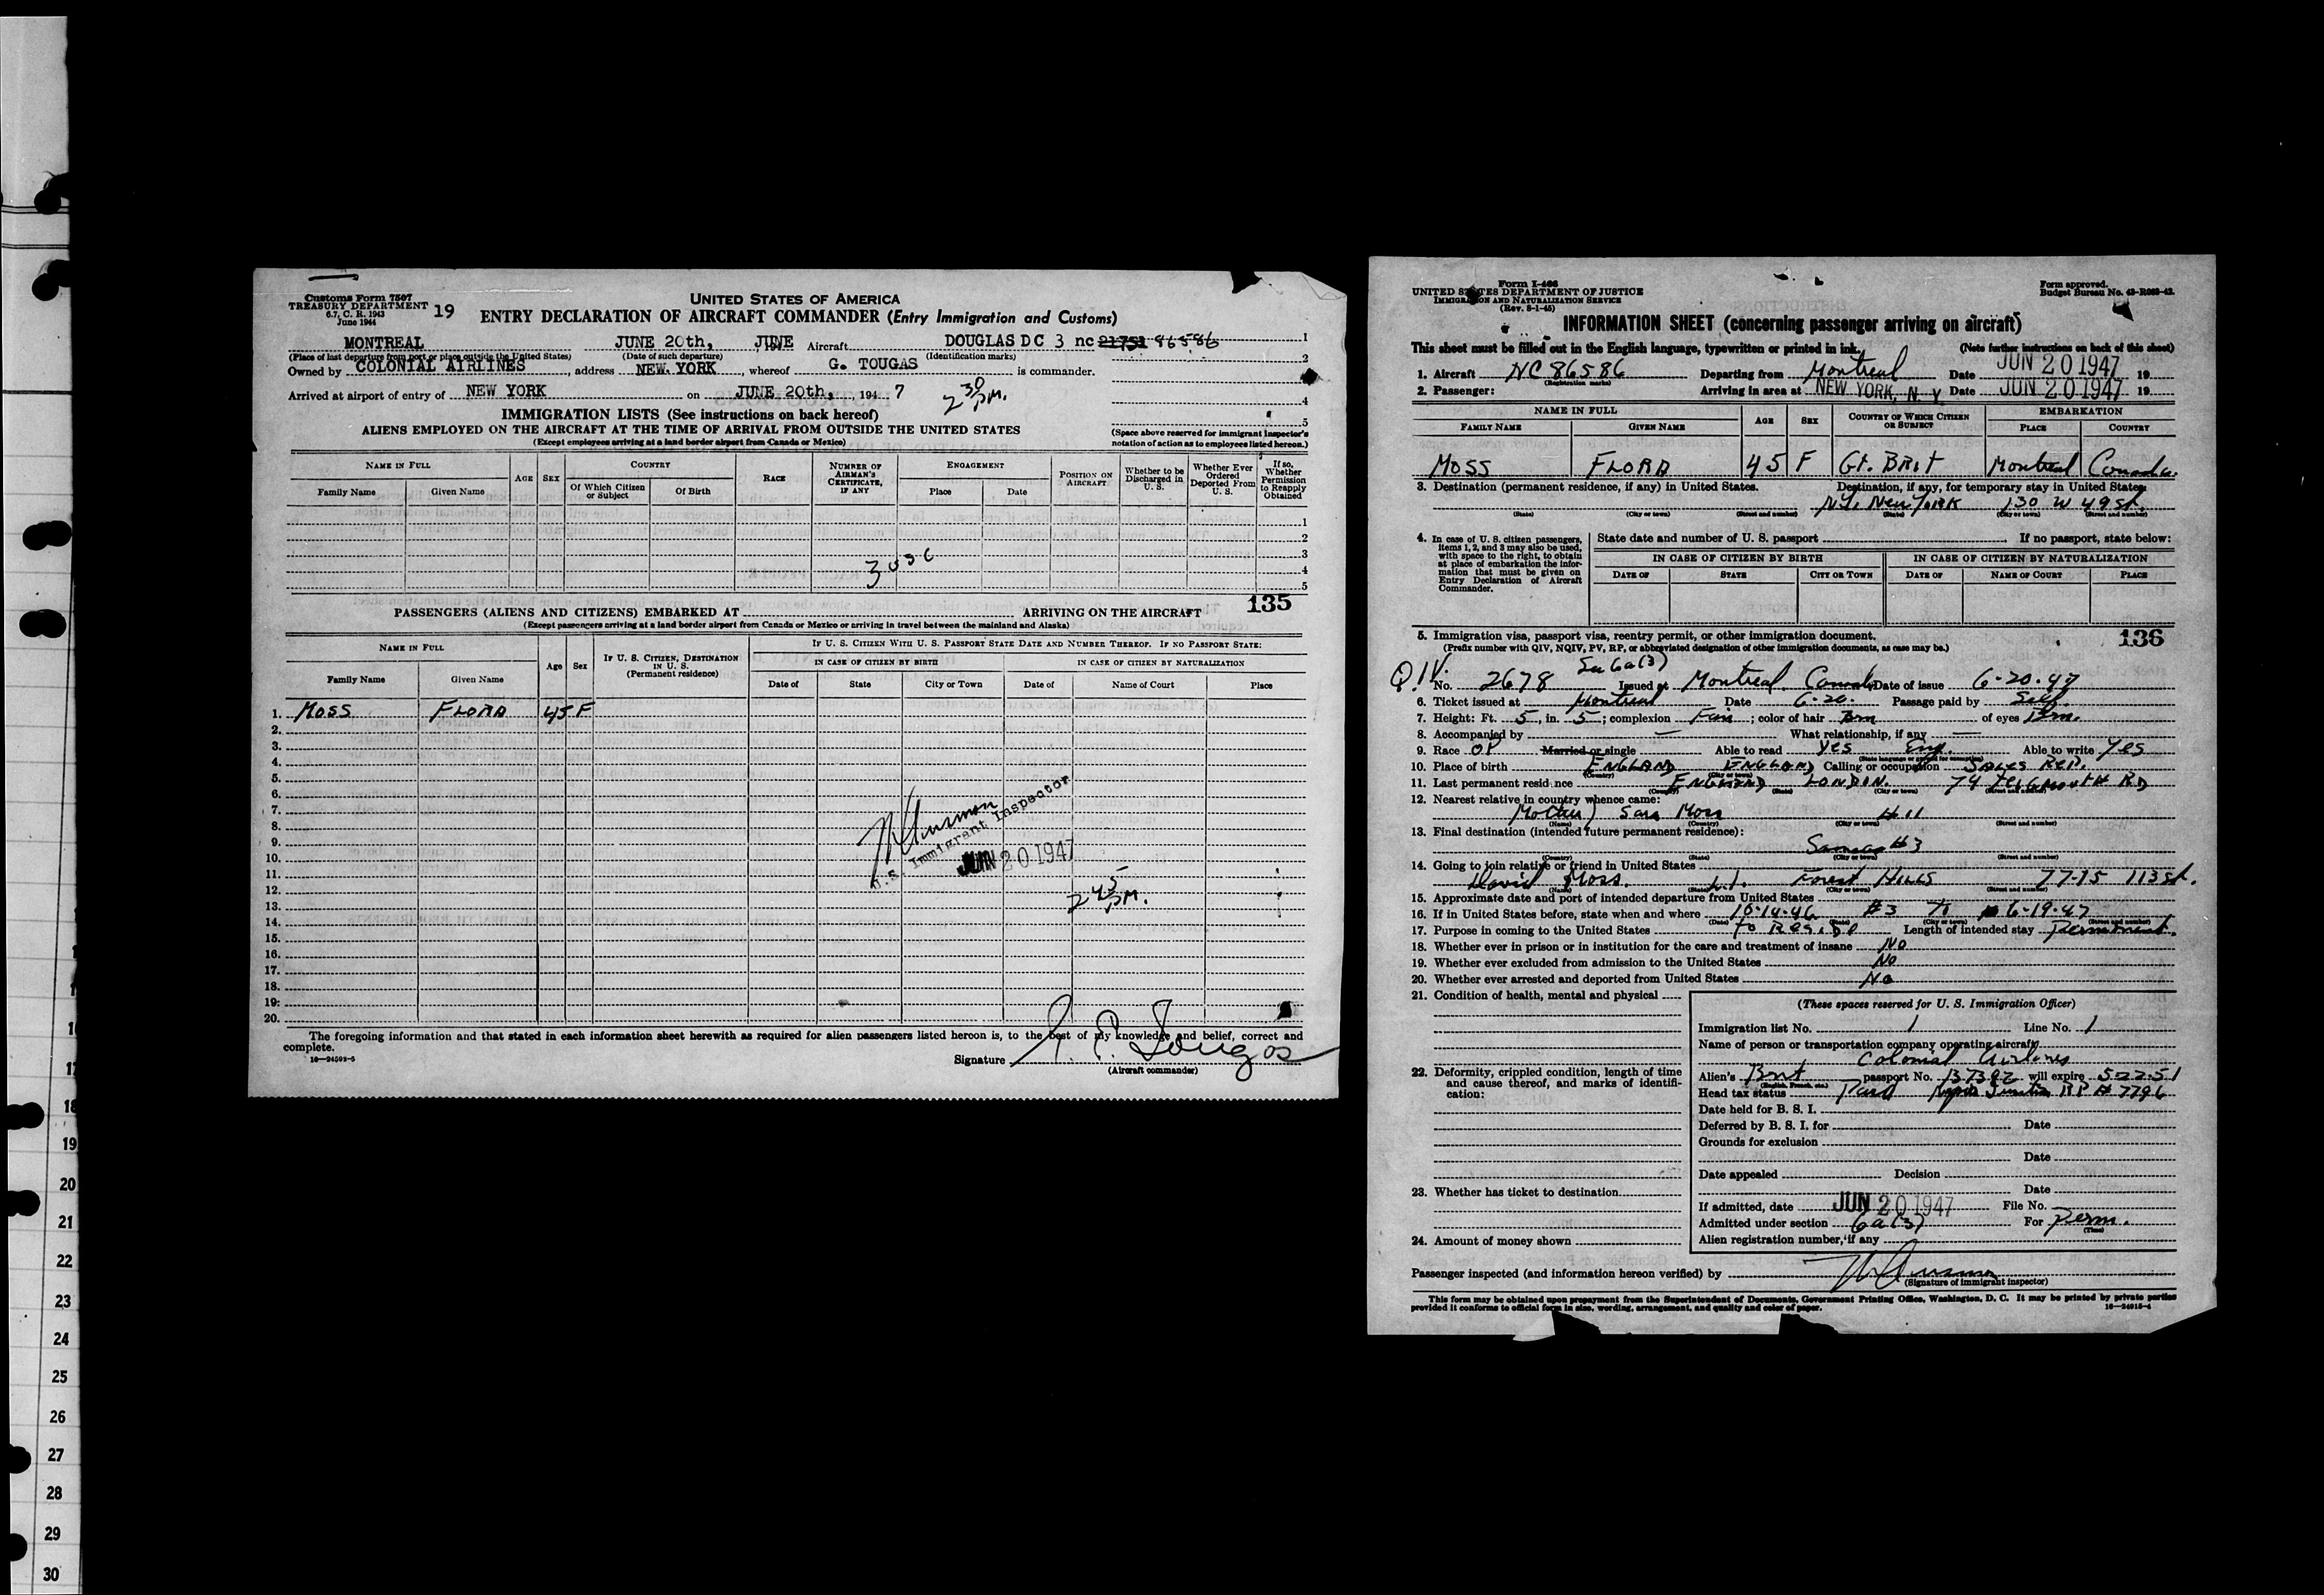 Customs Form 7507
TREASURY DEPARTMENT
6.7, C. R. 1943
June 1944
19
UNITED STATES OF AMERICA
ENTRY DECLARATION OF AIRCRAFT COMMANDER (Entry Immigration and Customs)
MONTREAL JUNE 20th, JUNE Aircraft DOUGLAS DC 3 nc 21751 86586 1
(Place of last departure from port or place outside the United States) (Date of such departure) (Identification marks) 2
Owned by COLONIAL AIRLINES, address NEW YORK, whereof G. TOUGAS is commander.
Arrived at airport of entry of NEW YORK on JUNE 20th, 194 7 2 30 PM. 4
IMMIGRATION LISTS (See instructions on back hereof) 5
ALIENS EMPLOYED ON THE AIRCRAFT AT THE TIME OF ARRIVAL FROM OUTSIDE THE UNITED STATES (Space above reserved for immigrant inspector's
(Except employees arriving at a land border airport from Canada or Mexico) notation of action as to employees listed hereon.)
NAME IN FULL AGE SEX COUNTRY RACE NUMBER OF AIRMAN'S CERTIFICATE, IF ANY ENGAGEMENT POSITION ON AIRCRAFT Whether to be Discharged in U. S. Whether Ever Ordered Deported From U. S. If so, Whether Permission to Reapply Obtained
Family Name Given Name Of Which Citizen or Subject Of Birth Place Date
1
2
3
4
5
135
PASSENGERS (ALIENS AND CITIZENS) EMBARKED AT ARRIVING ON THE AIRCRAFT
(Except passengers arriving at a land border airport from Canada or Mexico or arriving in travel between the mainland and Alaska)
NAME IN FULL Age Sex IF U. S. CITIZEN, DESTINATION IN U. S. (Permanent residence) IF U. S. CITIZEN WITH U. S. PASSPORT STATE DATE AND NUMBER THEREOF. IF NO PASSPORT STATE:
IN CASE OF CITIZEN BY BIRTH IN CASE OF CITIZEN BY NATURALIZATION
Family Name Given Name Date of State City or Town Date of Name of Court Place
1. MOSS FLORA 45 F
2.
3.
4.
5.
6.
7.
8.
9.
10.
11.
12.
13.
14.
15.
16.
17.
18.
19.
20.
U. S. Immigrant Inspector
JUN 20 1947
2 45 PM.
The foregoing information and that stated in each information sheet herewith as required for alien passengers listed hereon is, to the best of my knowledge and belief, correct and
complete.
16—24592-5
Signature
(Aircraft commander)
Form I-466
UNITED STATES DEPARTMENT OF JUSTICE
IMMIGRATION AND NATURALIZATION SERVICE
(Rev. 5-1-45)
Form approved.
Budget Bureau No. 43-R063-42.
INFORMATION SHEET (concerning passenger arriving on aircraft)
This sheet must be filled out in the English language, typewritten or printed in ink. (Note further instructions on back of this sheet)
1. Aircraft NC 86586 Departing from Montreal Date JUN 20 1947 19
(Registration marks)
2. Passenger: Arriving in area at NEW YORK, N. Y. Date JUN 20 1947 19
NAME IN FULL AGE SEX COUNTRY OF WHICH CITIZEN OR SUBJECT EMBARKATION
FAMILY NAME GIVEN NAME PLACE COUNTRY
MOSS FLORA 45 F Gt. BRIT Montreal Canada.
3. Destination (permanent residence, if any) in United States. Destination, if any, for temporary stay in United States.
N.Y. New York 130 W 49 St.
(State) (City or town) (Street and number) (State) (City or town) (Street and number)
4. In case of U. S. citizen passengers, items 1, 2, and 3 may also be used, with space to the right, to obtain at place of embarkation the information that must be given on Entry Declaration of Aircraft Commander.
State date and number of U. S. passport If no passport, state below:
IN CASE OF CITIZEN BY BIRTH IN CASE OF CITIZEN BY NATURALIZATION
DATE OF STATE CITY OR TOWN DATE OF NAME OF COURT PLACE
5. Immigration visa, passport visa, reentry permit, or other immigration document. 136
(Prefix number with QIV, NQIV, PV, RP, or abbreviated designation of other immigration documents, as case may be.)
Q.I.V. Sec 6a(3)
No. 2678 Issued at Montreal Canada Date of issue 6-20-47
6. Ticket issued at Montreal Date 6-20. Passage paid by Self
7. Height: Ft. 5, in. 5; complexion Fair; color of hair Brn of eyes Brn.
8. Accompanied by — What relationship, if any —
9. Race Married or single Able to read Yes Eng. Able to write Yes
10. Place of birth ENGLAND ENGLAND Calling or occupation SALES REP.
11. Last permanent residence ENGLAND LONDON. 74 TEIGNMOUTH RD
12. Nearest relative in country whence came:
Mother) Sara Moss # 11
(Name) (Country) (City or town) (Street and number)
13. Final destination (intended future permanent residence):
Same as #3
(Country) (State) (City or town) (Street and number)
14. Going to join relative or friend in United States
David Moss. L.I. Forest Hills 77-15 113 St.
(Name) (State) (City or town) (Street and number)
15. Approximate date and port of intended departure from United States
16. If in United States before, state when and where 10-14-46 #3 To 6-19-47
17. Purpose in coming to the United States To Reside Length of intended stay Permanent.
18. Whether ever in prison or in institution for the care and treatment of insane No
19. Whether ever excluded from admission to the United States No
20. Whether ever arrested and deported from United States No
21. Condition of health, mental and physical
22. Deformity, crippled condition, length of time and cause thereof, and marks of identification:
23. Whether has ticket to destination
24. Amount of money shown
(These spaces reserved for U. S. Immigration Officer)
Immigration list No. 1 Line No. 1
Name of person or transportation company operating aircraft
Colonial Airlines
Alien's Brit passport No. 137392 will expire 5-22-51
(English, French, etc.)
Head tax status Paid RP # 7796
Date held for B. S. I.
Deferred by B. S. I. for Date
Grounds for exclusion
Date
Date appealed Decision
Date
If admitted, date JUN 20 1947 File No.
Admitted under section 6a(3) For Perm.
(Time)
Alien registration number, if any
Passenger inspected (and information hereon verified) by
(Signature of immigrant inspector)
This form may be obtained upon prepayment from the Superintendent of Documents, Government Printing Office, Washington, D. C. It may be printed by private parties
provided it conforms to official form in size, wording, arrangement, and quality and color of paper. 16—24915-4
18
19
20
21
22
23
24
25
26
27
28
29
30